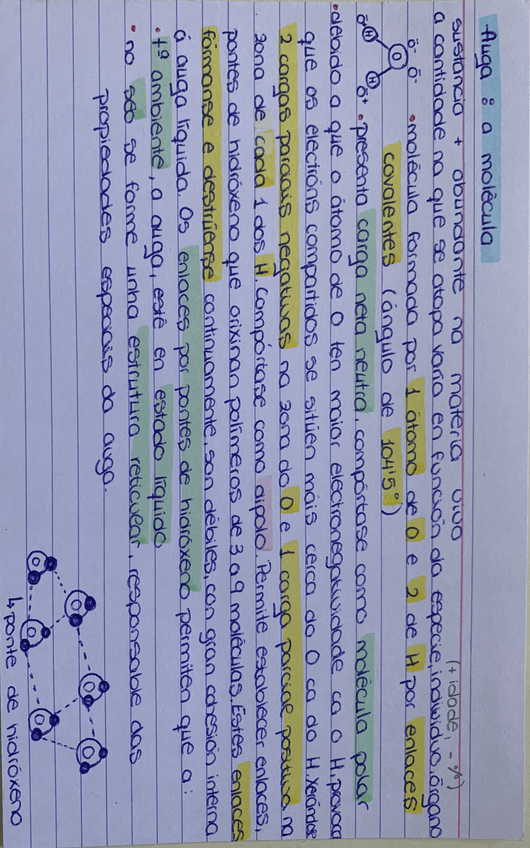 Auga: a molécula
sustancia + abundante na materia viva (+ idade, - %)
a cantidade na que se atopa varía en función da especie, individuo, órgano
δ- δ- •molécula formada por 1 átomo de O e 2 de H por enlaces
O covalentes (ángulo de 104'5º)
H H δ+ δ+ •presenta carga neta neutra, compórtase como molécula polar
•debido a que o átomo de O ten maior electronegatividade ca o H, provoca
que os electróns compartidos se sitúen máis cerca do O ca do H, xerándose
2 cargas parciais negativas na zona do O e 1 carga parcial positiva na
zona de cada 1 dos H. Compórtase como dipolo. Permite establecer enlaces,
pontes de hidróxeno que orixinan polímeros de 3 a 9 moléculas. Estes enlaces
fórmanse e destrúense continuamente, son débiles, con gran cohesión interna
á auga líquida. Os enlaces por pontes de hidróxeno permiten que a:
• tª ambiente, a auga, esté en estado líquido
• no se forme unha estrutura reticular, responsable das
propiedades especiais da auga.
ponte de hidróxeno